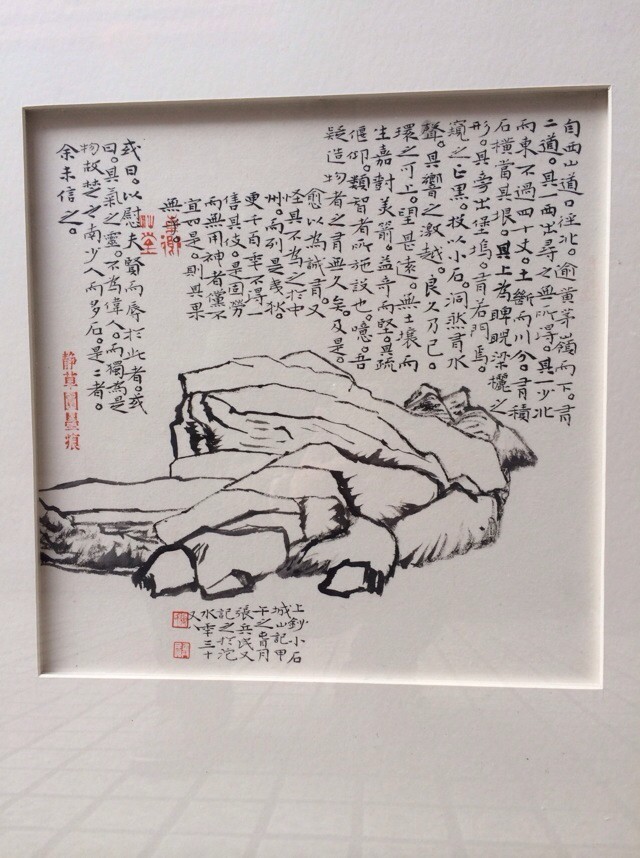 自西山道。徑北。逾黄茅嶺而下。有
二道。其一西出尋之無所得。其一少北
而東。不過四十丈。土斷而川分。有積
石橫當其垠。其上為睥睨梁欐之
形。其旁出堡塢。有若門焉。
窺之正黑。投以小石。洞然有水
聲。其響之激越。良久乃已。
環之可上。望甚遠。無土壤而
生嘉樹美箭。益奇而堅。其疏
偃仰。類智者所施設也。噫。吾
疑造物者之有無久矣。及是。
愈以為誠有。又
怪其不為之於中
州。而列是夷狄。
更千百年不得一
售其伎。是固勞
而無用神者儻不
宜如是。則其果
無乎。
或曰。以慰夫賢而辱於此者。或
曰。其氣之靈。不為偉人。而獨為是
物故楚之南少人而多石。是二者。
余未信之。
静草園墨痕
上鈔小石
城山記甲
午之月
張兵又
記之於沱
水年三十
又